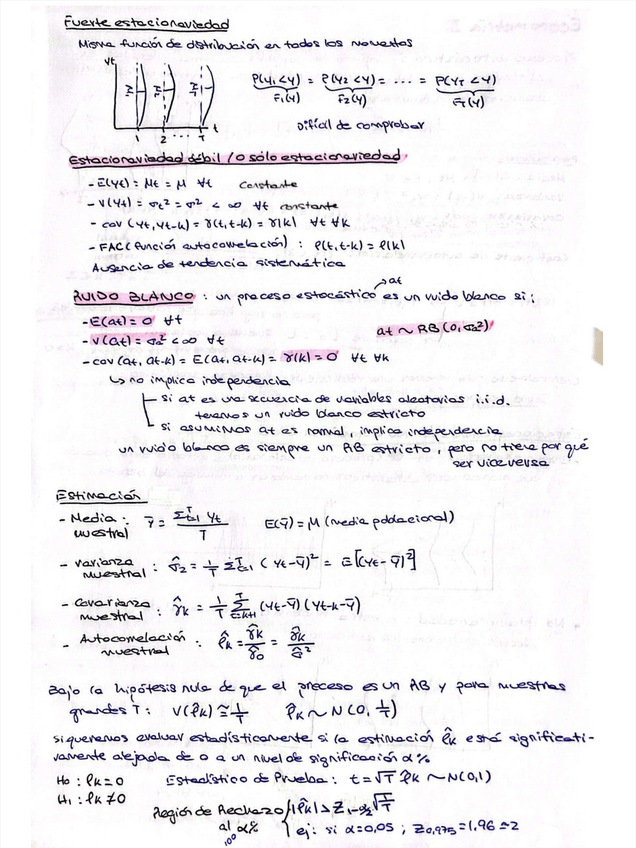 Fuerte estacionariedad
Misma función de distribución en todos los momentos
Yt
P(Y1 < y) = P(Y2 < y) = ... = P(YT < y)
F1(y) F2(y) FT(y)
1 2 ... T t
Difícil de comprobar
Estacionariedad débil / o sólo estacionariedad
- E(Yt) = μt = μ ∀t constante
- V(Yt) = σt² = σ² < ∞ ∀t constante
- cov(Yt, Yt-k) = γ(t, t-k) = γ(k) ∀t ∀k
- FAC (función autocorrelación) : ρ(t, t-k) = ρ(k)
Ausencia de tendencia sistemática
→ at
RUIDO BLANCO : un proceso estocástico es un ruido blanco si :
- E(at) = 0 ∀t
at ~ RB (0, σa²)
- V(at) = σa² < ∞ ∀t
- cov(at, at-k) = E(at, at-k) = γ(k) = 0 ∀t ∀k
↳ no implica independencia
si at es una secuencia de variables aleatorias i.i.d.
tenemos un ruido blanco estricto
si asumimos at es normal, implica independencia
un ruido blanco es siempre un RB estricto, pero no tiene por qué
ser viceversa
Estimación
- Media muestral : ȳ = Σᵀt=1 Yt / T E(ȳ) = μ (media poblacional)
- varianza muestral : σ̂2 = 1/T Σᵀt=1 (Yt - ȳ)² = E[(Yt - ȳ)²]
- Covarianza muestral : γ̂k = 1/T Σᵀt=k+1 (Yt - ȳ)(Yt-k - ȳ)
- Autocorrelación muestral : ρ̂k = γ̂k / γ̂0 = γ̂k / σ̂²
Bajo la hipótesis nula de que el proceso es un RB y para muestras
grandes T : V(ρ̂k) ≅ 1/T ρ̂k ~ N(0, 1/T)
si queremos evaluar estadísticamente si la estimación ρ̂k está significati-
vamente alejada de 0 a un nivel de significación α%
H0 : ρk = 0 Estadístico de Prueba : t = √T ρ̂k ~ N(0,1)
H1 : ρk ≠ 0
Región de Rechazo { |ρ̂k| > Z1-α/2 √1/T
al 100 α% ej: si α = 0,05 ; Z0,975 = 1,96 ≃ 2